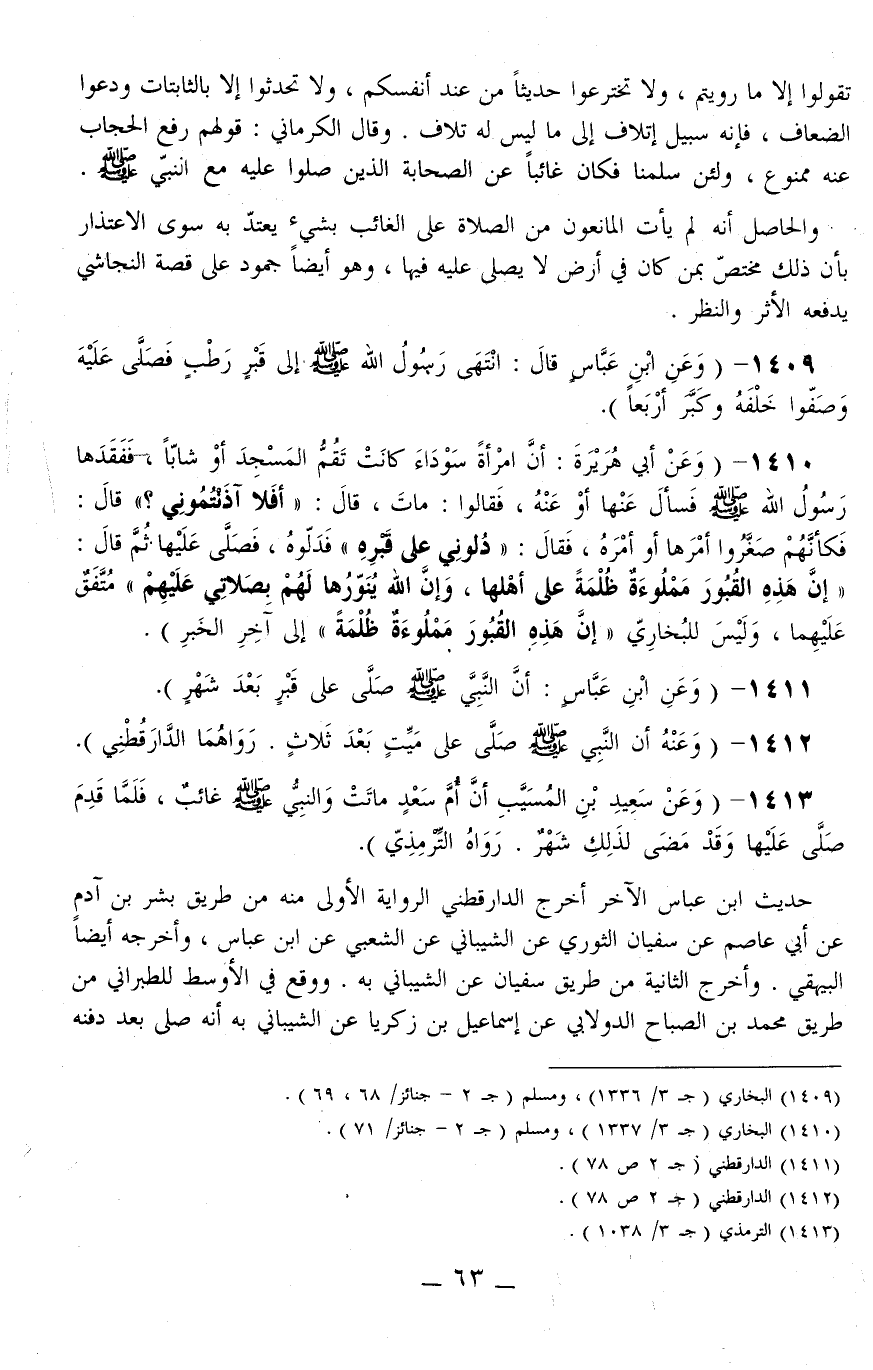 تقولوا إلا ما رويتم ، ولا تخترعوا حديثاً من عند أنفسكم ، ولا تحدثوا إلا بالثابتات ودعوا
الضعاف ، فإنه سبيل إتلاف إلى ما ليس له تلاف . وقال الكرماني : قولهم رفع الحجاب
عنه ممنوع ، ولئن سلمنا فكان غائباً عن الصحابة الذين صلوا عليه مع النبيّ ﷺ .
والحاصل أنه لم يأت المانعون من الصلاة على الغائب بشيء يعتدّ به سوى الاعتذار
بأن ذلك مختصّ بمن كان في أرض لا يصلى عليه فيها ، وهو أيضاً جمود على قصة النجاشي
يدفعه الأثر والنظر .
١٤٠٩- ( وَعَنِ ابْنِ عَبَّاسٍ قالَ : انْتَهَى رَسُولُ الله ﷺ إلى قَبْرٍ رَطْبٍ فَصَلَّى عَلَيْهَ
وَصَفّوا خَلْفَهُ وكَبَّرَ أرْبَعاً ).
١٤١٠- ( وَعَنْ أبي هُرَيْرَةَ : أنَّ امْرأةً سَوْدَاءَ كانَتْ تَقُمُّ المَسْجِدَ أوْ شابّاً ، فَفَقَدَها
رَسُولُ الله ﷺ فَسألَ عَنْها أوْ عَنْهُ ، فَقالوا : ماتَ ، قالَ : « أفَلا آذَنْتُمُوني ؟» قالَ :
فَكأنَّهُمْ صَغَّرُوا أمْرَها أو أمْرَهُ ، فَقالَ : « دُلوني على قَبْرِه » فَدَلّوهُ ، فَصَلَّى عَلَيْها ثُمَّ قالَ :
« إنَّ هَذِهِ القُبُورَ مَمْلُوءَةٌ ظُلْمَةً على أهْلها ، وَإنَّ الله يُنَوّرُها لَهُمْ بِصَلاتي عَلَيْهِمْ » مُتَّفَقٌ
عَلَيْهِما ، وَلَيْسَ للبُخاريّ « إنَّ هَذِهِ القُبُورَ مَمْلُوءَةٌ ظُلْمَةً » إلى آخِرِ الخَبرِ ) .
١٤١١- ( وَعَنِ ابْنِ عَبَّاسٍ : أنَّ النَّبِيَّ ﷺ صَلَّى على قَبْرٍ بَعْدَ شَهْرٍ ).
١٤١٢- ( وَعَنْهُ أن النَّبِي ﷺ صَلَّى على مَيِّتٍ بَعْدَ ثَلاثٍ . رَوَاهُمَا الدَّارَقُطْنِي ).
١٤١٣- ( وَعَنْ سَعِيدِ بْنِ المُسَيَّبِ أنَّ أُمَّ سَعْدٍ ماتَتْ وَالنبِيُّ ﷺ غائبٌ ، فَلَمَّا قَدِمَ
صَلَّى عَلَيْها وَقَدْ مَضَى لذَلِكِ شَهْرٌ . رَوَاهُ التِّرْمِذِيّ ).
حديث ابن عباس الآخر أخرج الدارقطني الرواية الأولى منه من طريق بشر بن آدم
عن أبي عاصم عن سفيان الثوري عن الشيباني عن الشعبي عن ابن عباس ، وأخرجه أيضاً
البيهقي . وأخرج الثانية من طريق سفيان عن الشيباني به . ووقع في الأوسط للطبراني من
طريق محمد بن الصباح الدولابي عن إسماعيل بن زكريا عن الشيباني به أنه صلى بعد دفنه
(١٤٠٩) البخاري ( جـ ٣/ ١٣٣٦) ، ومسلم ( جـ ٢ – جنائز/ ٦٨ ، ٦٩ ) .
(١٤١٠) البخاري ( جـ ٣/ ١٣٣٧ ) ، ومسلم ( جـ ٢ – جنائز/ ٧١ ) .
(١٤١١) الدارقطني ( جـ ٢ ص ٧٨ ) .
(١٤١٢) الدارقطني ( جـ ٢ ص ٧٨ ) .
(١٤١٣) الترمذي ( جـ ٣/ ١٠٣٨ ) .
– ٦٣ –